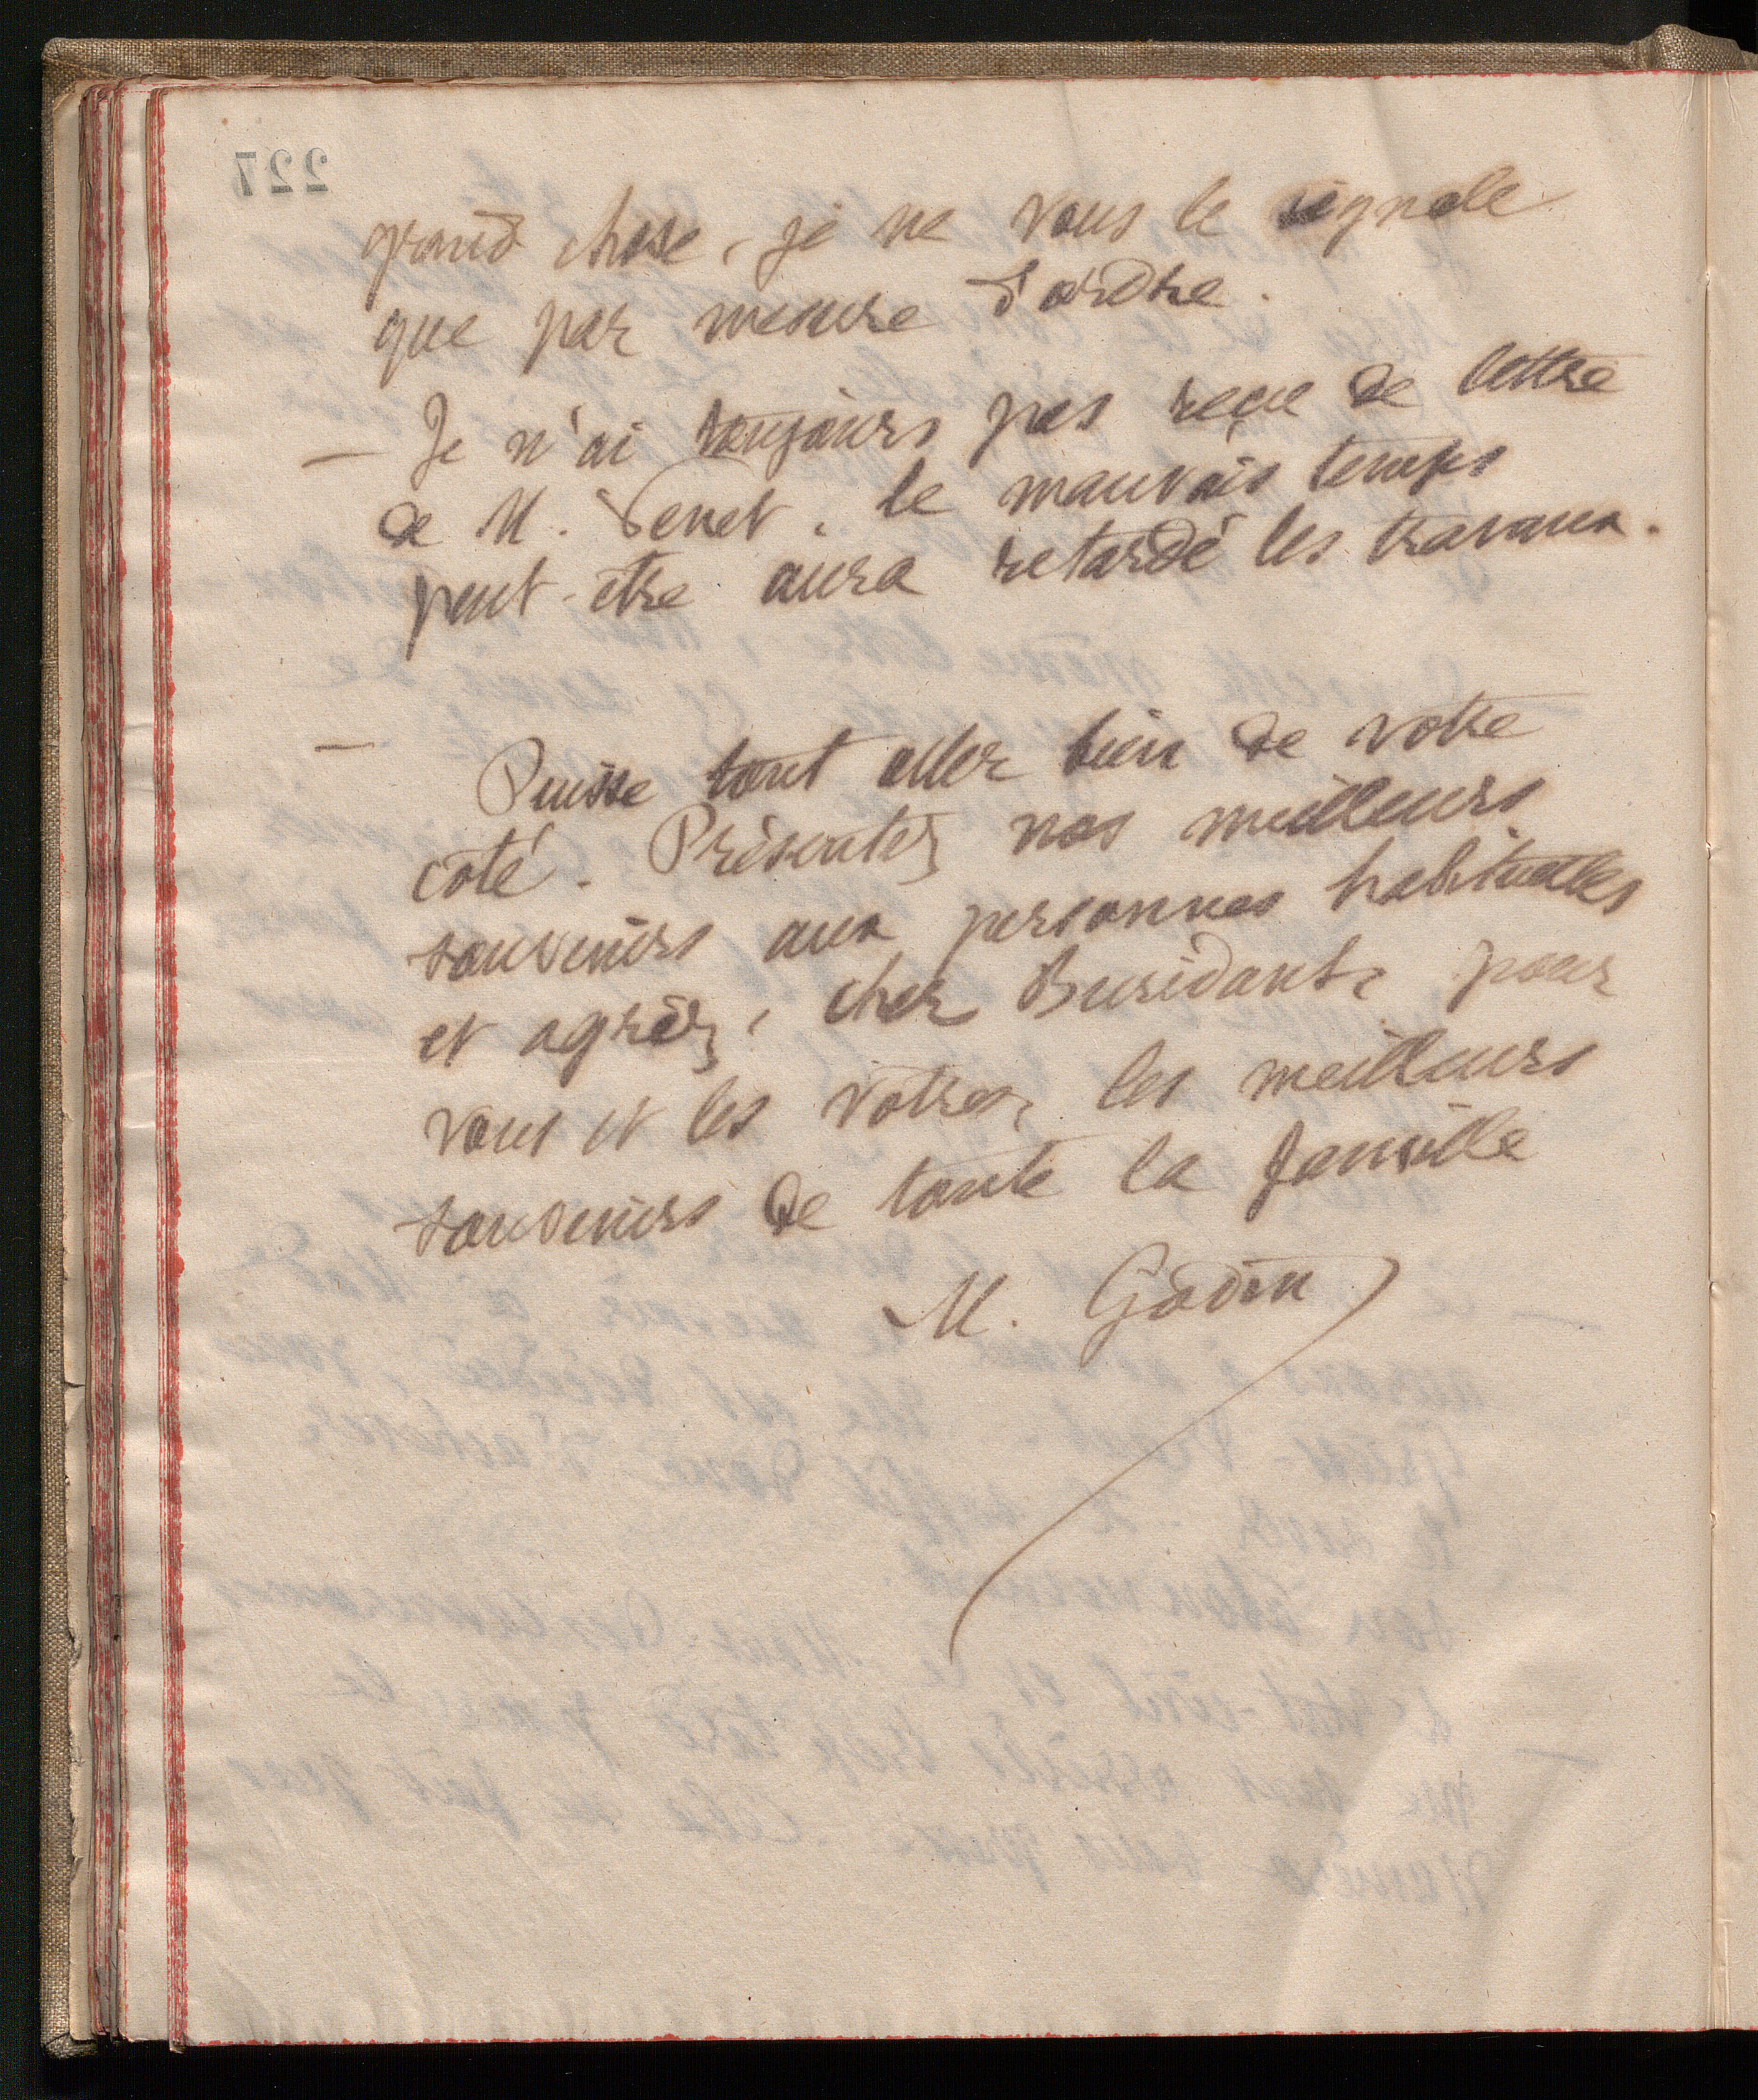 227
grand chose, je ne vous le signale
que par mesure d'ordre.
— Je n'ai toujours pas reçue de lettre
de M. Venet, le mauvais temps
peut-etre aura retardé les travaux.
— Puisse tout aller bien de votre
coté. Présentez nos meilleurs
souvenirs aux personnes habituelles
et agréez, cher Buridant, pour
vous et les vôtres, les meilleurs
souvenirs de toute la famille
M. Godin